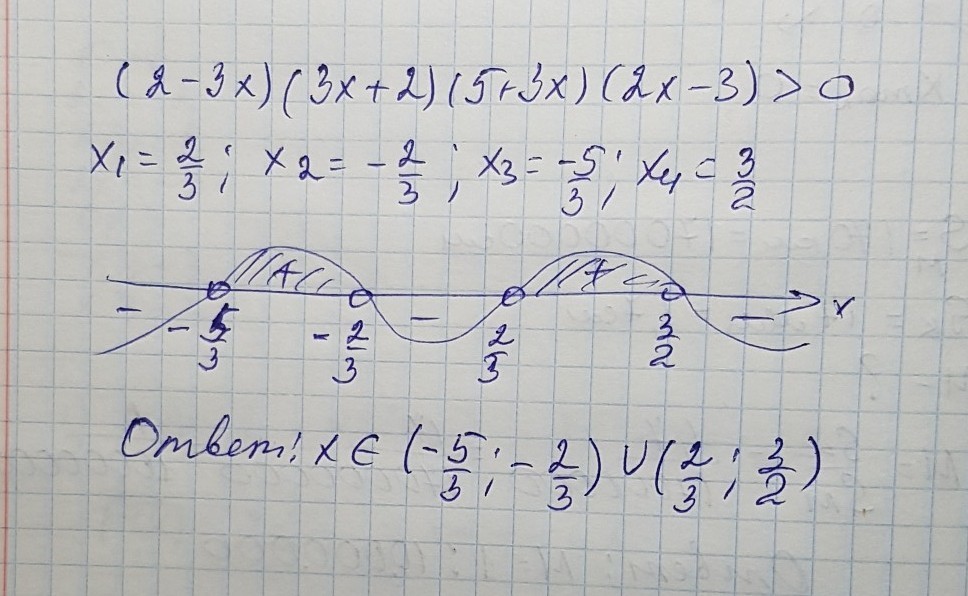 (2-3x)(3x+2)(5+3x)(2x-3)>0
x1 = 2/3; x2 = -2/3; x3 = -5/3; x4 = 3/2
+ +
- - - x
-5/3 -2/3 2/3 3/2
Ответ: x ∈ (-5/3; -2/3) ∪ (2/3; 3/2)